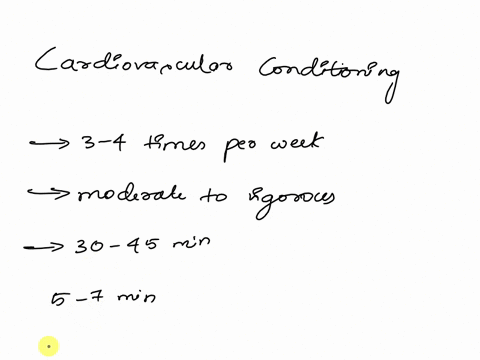 Cardiovascular Conditioning
→ 3-4 times per week
→ moderate to vigorous
→ 30-45 min
5-7 min